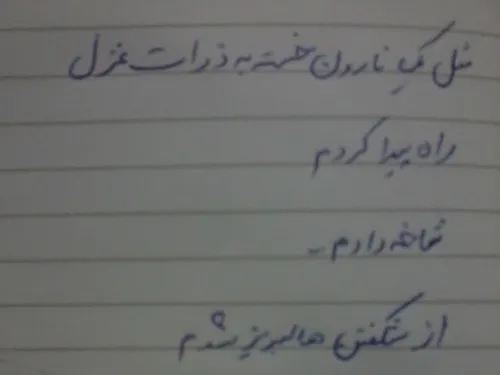 مثل یک نارون خسته به ذرات غزل
راه پیدا کردم
شاخه دادم -
از شکفتن ها لبریز شدم